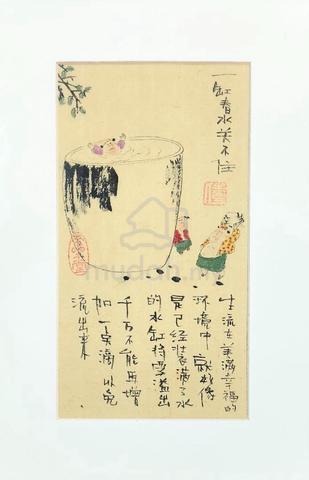 一缸春水关不住
生活在美满幸福的
环境中 就好像
是已经装满了水
的水缸将要溢出
千万不能再增
加一点滴以免
流出来
mudah.my